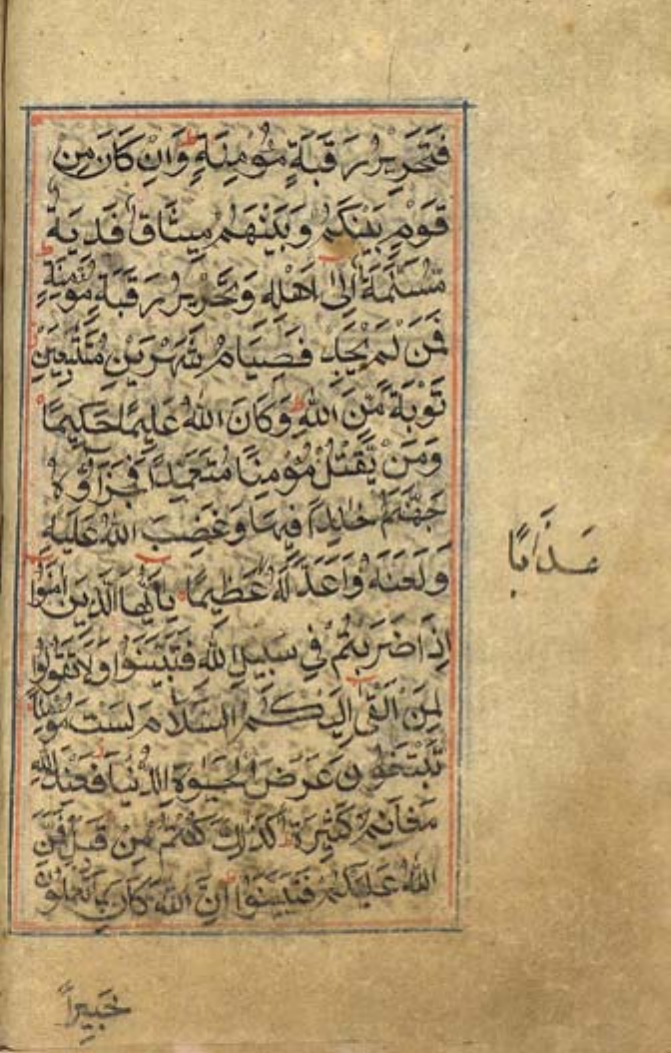 فَتَحْرِيرُ رَقَبَةٍ مُؤْمِنَةٍ ط وَاِنْ كَانَ مِنْ
قَوْمٍ بَيْنَكُمْ وَبَيْنَهُمْ مِيثَاقٌ فَدِيَةٌ
مُسَلَّمَةٌ اِلٰى اَهْلِهِ وَتَحْرِيرُ رَقَبَةٍ مُؤْمِنَةٍ ط
فَمَنْ لَمْ يَجِدْ فَصِيَامُ شَهْرَيْنِ مُتَتَابِعَيْنِ
تَوْبَةً مِّنَ اللّٰهِ ط وَكَانَ اللّٰهُ عَلِيمًا حَكِيمًا
وَمَنْ يَّقْتُلْ مُؤْمِنًا مُتَعَمِّدًا فَجَزَآؤُهُ
جَهَنَّمُ خَالِدًا فِيهَا وَغَضِبَ اللّٰهُ عَلَيْهِ
وَلَعَنَهُ وَاَعَدَّ لَهُ عَظِيمًا يَا اَيُّهَا الَّذِينَ اٰمَنُوا
اِذَا ضَرَبْتُمْ فِي سَبِيلِ اللّٰهِ فَتَبَيَّنُوا وَلَا تَقُولُوا
لِمَنْ اَلْقٰى اِلَيْكُمُ السَّلَامَ لَسْتَ مُؤْمِنًا
تَبْتَغُونَ عَرَضَ الْحَيٰوةِ الدُّنْيَا فَعِنْدَ اللّٰهِ
مَغَانِمُ كَثِيرَةٌ ط كَذٰلِكَ كُنْتُمْ مِنْ قَبْلُ فَمَنَّ
اللّٰهُ عَلَيْكُمْ فَتَبَيَّنُوا ط اِنَّ اللّٰهَ كَانَ بِمَا تَعْمَلُونَ
عَذَابًا
خَبِيرًا